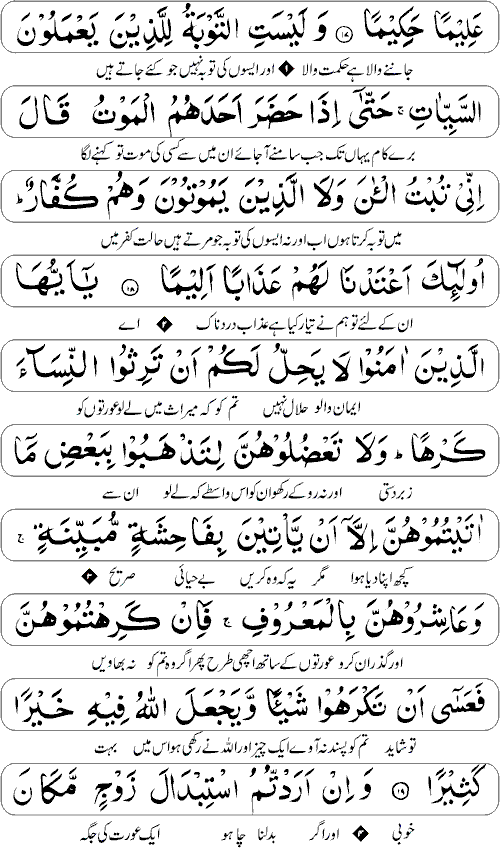 عَلِيْمًا حَكِيْمًا ﴿١٧﴾ وَ لَيْسَتِ التَّوْبَةُ لِلَّذِيْنَ يَعْمَلُوْنَ
جاننے والا ہے حکمت والا ۱ اور ایسوں کی توبہ نہیں جو کئے جاتے ہیں
السَّيِّاٰتِ ۚ حَتّٰۤى اِذَا حَضَرَ اَحَدَهُمُ الْمَوْتُ قَالَ
برے کام یہاں تک جب سامنے آجائے ان میں سے کسی کی موت تو کہنے لگا
اِنِّىْ تُبْتُ الْـٰٔنَ وَلَا الَّذِيْنَ يَمُوْتُوْنَ وَهُمْ كُفَّارٌ ؕ
میں توبہ کرتا ہوں اب اور نہ ایسوں کی توبہ جو مرتے ہیں حالت کفر میں
اُولٰٓئِكَ اَعْتَدْنَا لَهُمْ عَذَابًا اَلِيْمًا ﴿١٨﴾ يٰۤاَيُّهَا
ان کے لئے تو ہم نے تیار کیا ہے عذاب دردناک ۲ اے
الَّذِيْنَ اٰمَنُوْا لَا يَحِلُّ لَكُمْ اَنْ تَرِثُوا النِّسَآءَ
ایمان والو حلال نہیں تم کو کہ میراث میں لے لو عورتوں کو
كَرْهًا ؕ وَلَا تَعْضُلُوْهُنَّ لِتَذْهَبُوْا بِبَعْضِ مَاۤ
زبردستی اور نہ روکے رکھو ان کو اس واسطے کہ لے لو ان سے
اٰتَيْتُمُوْهُنَّ اِلَّاۤ اَنْ يَّاْتِيْنَ بِفَاحِشَةٍ مُّبَيِّنَةٍ ۚ
کچھ اپنا دیا ہوا مگر یہ کہ وہ کریں بے حیائی صریح ۳
وَعَاشِرُوْهُنَّ بِالْمَعْرُوْفِ ۚ فَاِنْ كَرِهْتُمُوْهُنَّ
اور گذران کرو عورتوں کے ساتھ اچھی طرح پھر اگر وہ تم کو نہ بھاویں
فَعَسٰۤى اَنْ تَكْرَهُوْا شَيْـًٔا وَّيَجْعَلَ اللّٰهُ فِيْهِ خَيْرًا
تو شاید تم کو پسند نہ آوے ایک چیز اور اللہ نے رکھی ہو اس میں بہت
كَثِيْرًا ﴿١٩﴾ وَاِنْ اَرَدْتُّمُ اسْتِبْدَالَ زَوْجٍ مَّكَانَ
خوبی ۴ اور اگر بدلنا چاہو ایک عورت کی جگہ